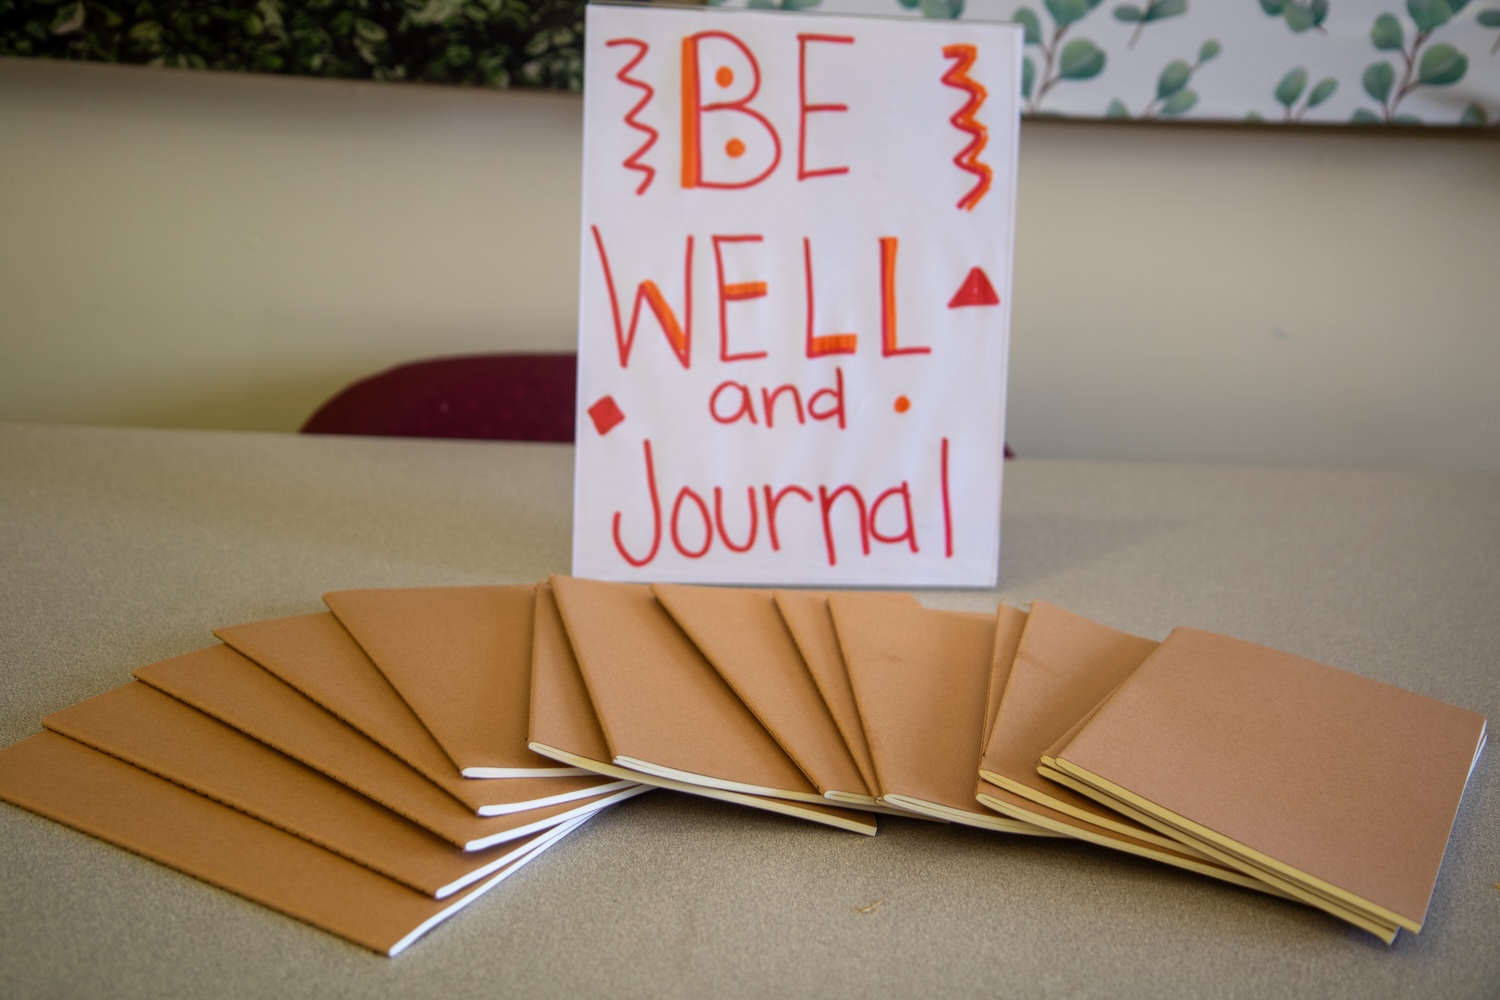 BE
WELL
and
Journal